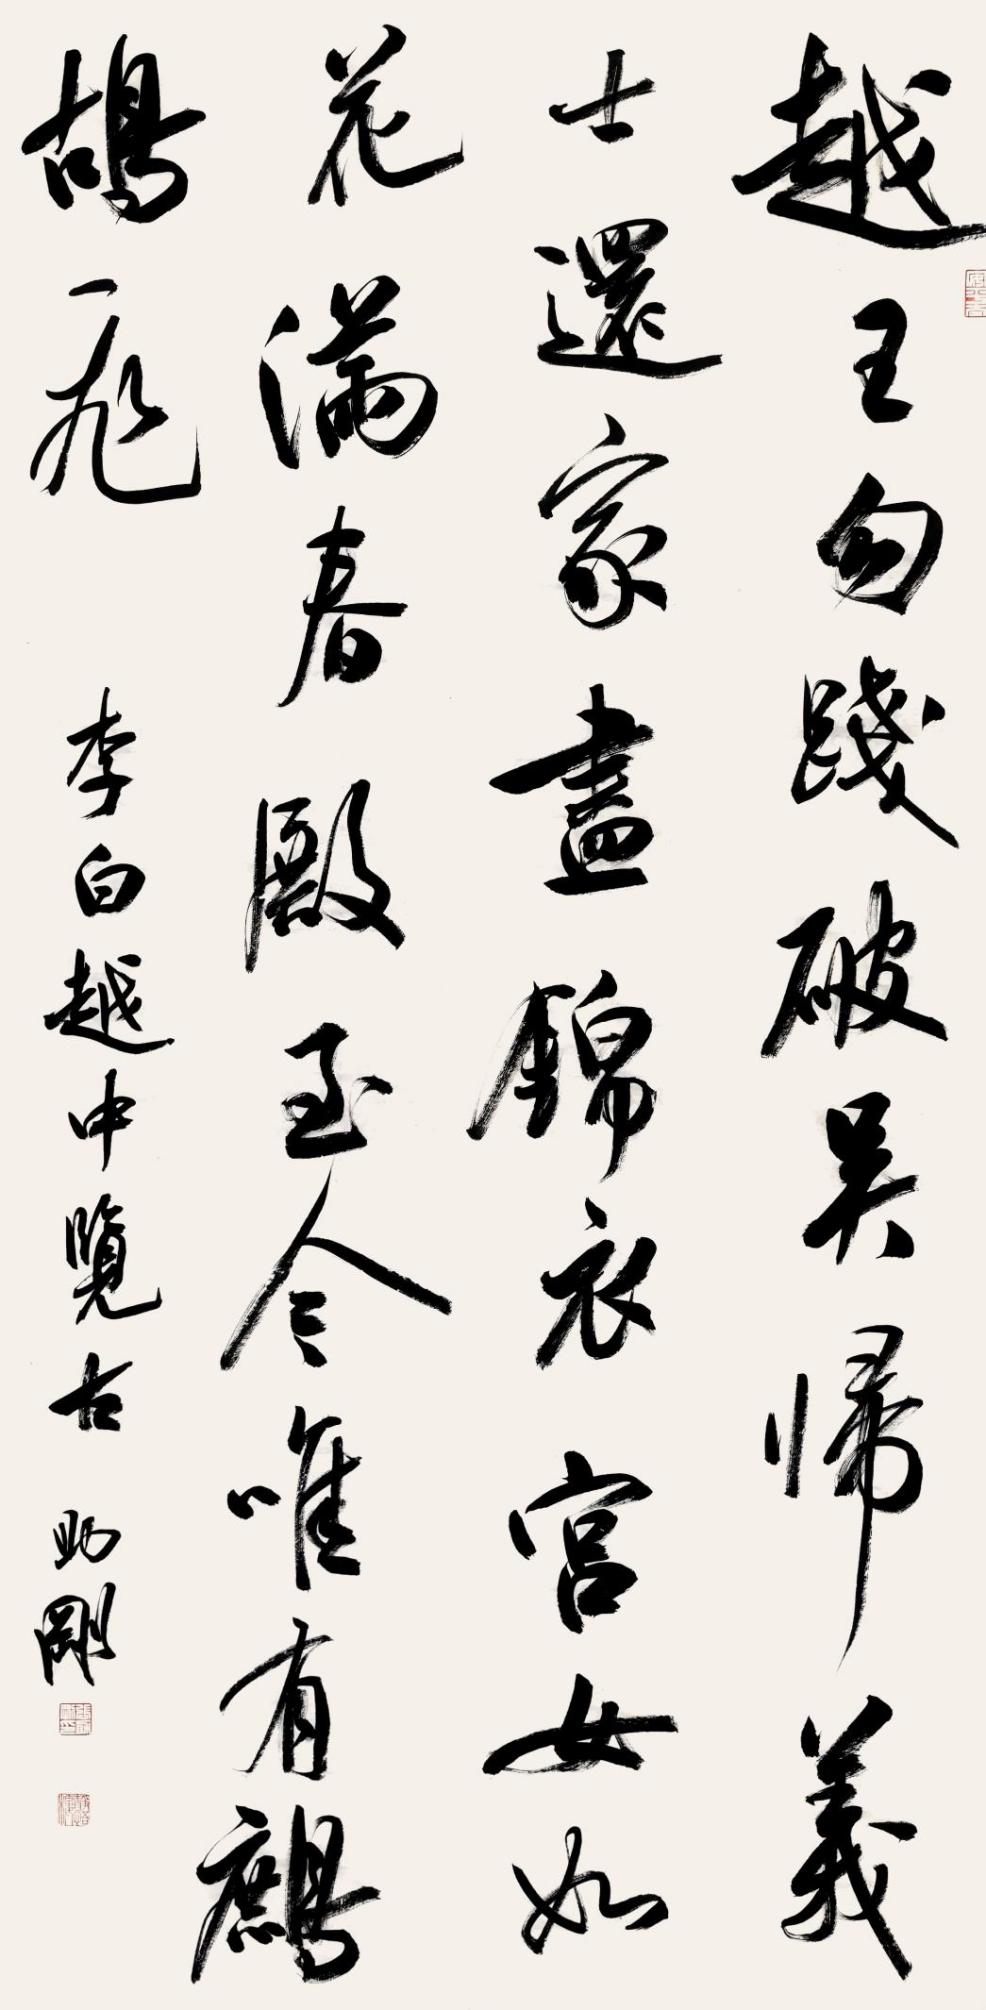 越王勾踐破吴歸義
士還家盡錦衣宫女如
花滿春殿至今唯有鷓
鴣飛
李白越中覽古 助剛